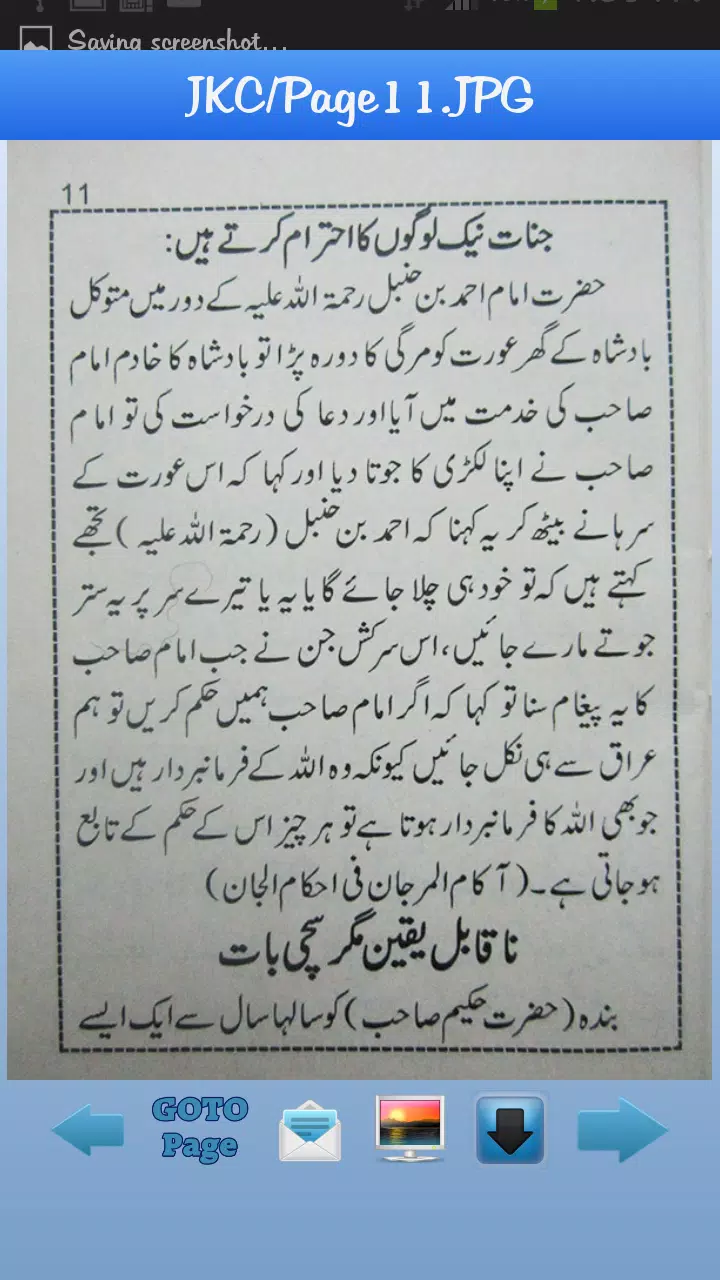 Saving screenshot...
JKC/Page11.JPG
11
جنات نیک لوگوں کا احترام کرتے ہیں:
حضرت امام احمد بن حنبل رحمۃ اللہ علیہ کے دور میں متوکل
بادشاہ کے گھر عورت کو مرگی کا دورہ پڑا تو بادشاہ کا خادم امام
صاحب کی خدمت میں آیا اور دعا کی درخواست کی تو امام
صاحب نے اپنا لکڑی کا جوتا دیا اور کہا کہ اس عورت کے
سرہانے بیٹھ کر یہ کہنا کہ احمد بن حنبل (رحمۃ اللہ علیہ ) تجھے
کہتے ہیں کہ تو خود ہی چلا جائے گا یا یہ یا تیرے سر پر یہ ستر
جوتے مارے جائیں، اس سرکش جن نے جب امام صاحب
کا یہ پیغام سنا تو کہا کہ اگر امام صاحب ہمیں حکم کریں تو ہم
عراق سے ہی نکل جائیں کیونکہ وہ اللہ کے فرمانبردار ہیں اور
جو بھی اللہ کا فرمانبردار ہوتا ہے تو ہر چیز اس کے حکم کے تابع
ہو جاتی ہے۔ (آکام المرجان فی احکام الجان)
ناقابل یقین مگر سچی بات
بندہ (حضرت حکیم صاحب) کو سالہا سال سے ایک ایسے
GOTO
Page